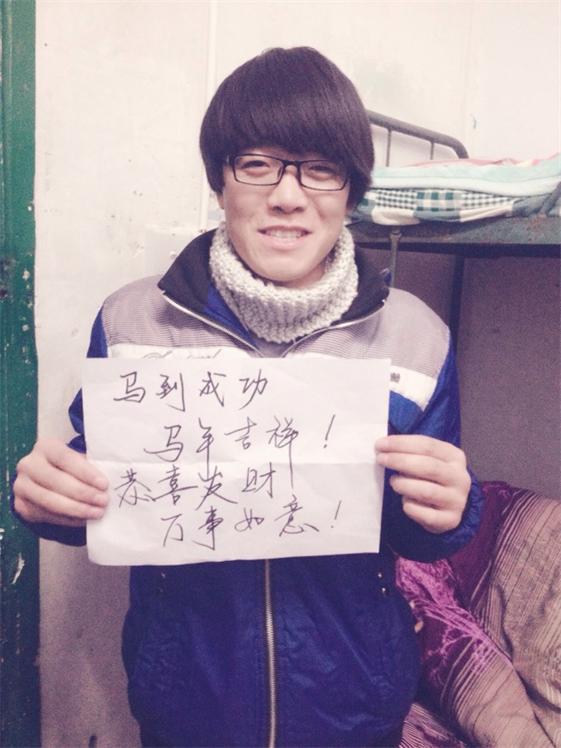 马到成功
马年吉祥！
恭喜发财
万事如意！